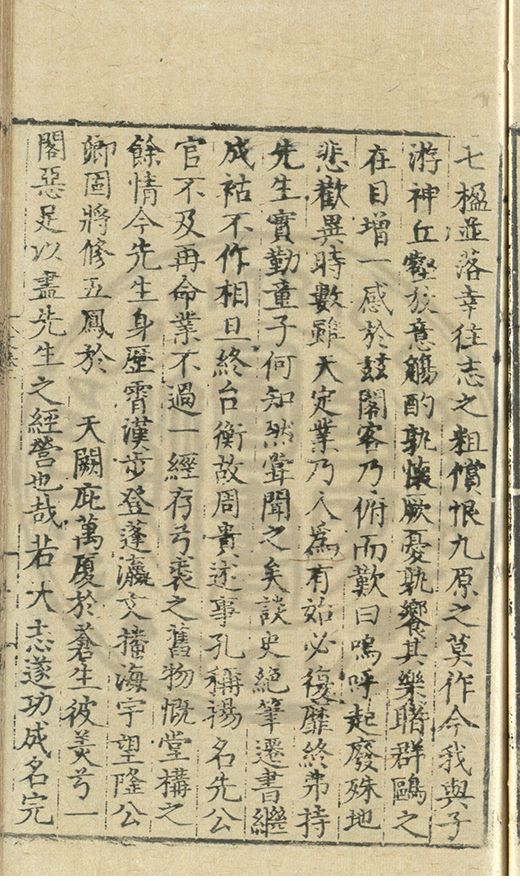 七楹並落幸往志之粗償恨九原之莫作今我與子
游神丘壑放意觴酌孰懷厥憂孰饗其樂睹群鷗之
在目增一感於茲閣客乃俯而歎曰嗚呼起廢殊地
悲歡異時數雖天定業乃人為有始必復靡終弗持
先生實勤童子何知然聳聞之矣談史絕筆遷書繼
成祜不作相旦終台衡故周貴述事孔稱揚名先公
官不及再命業不過一經存弓裘之舊物慨堂構之
餘情今先生身歷霄漢步登蓬瀛文播海宇望隆公
卿固將修五鳳於　天闕庇萬廈於蒼生彼美兮一
閣惡足以盡先生之經營也哉若大志遂功成名完